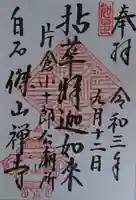 奉拝
令和三年
九月十二日
拈華釈迦如来
片倉小十郎公御廟所
白石 傑山禅寺